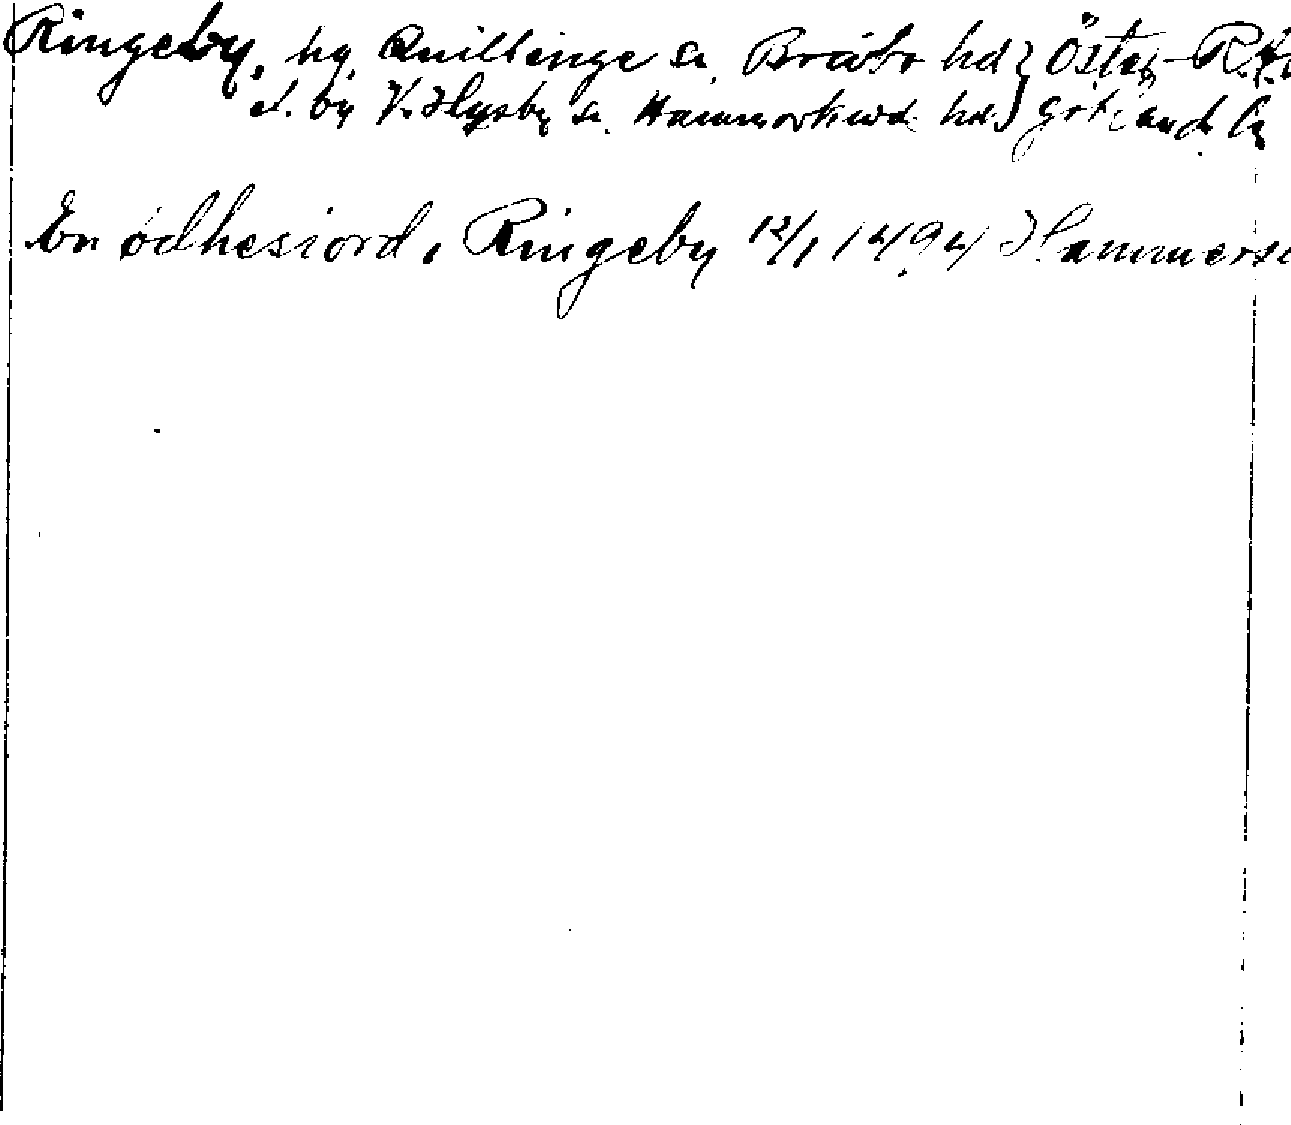 Ringeby, hg. Quillinge sn. Bråbo hd } Öster- R.A.
el. by V. Husby sn. Hammarkinds hd } götlands ln
En ödhesiord, Ringeby 12/1 1494